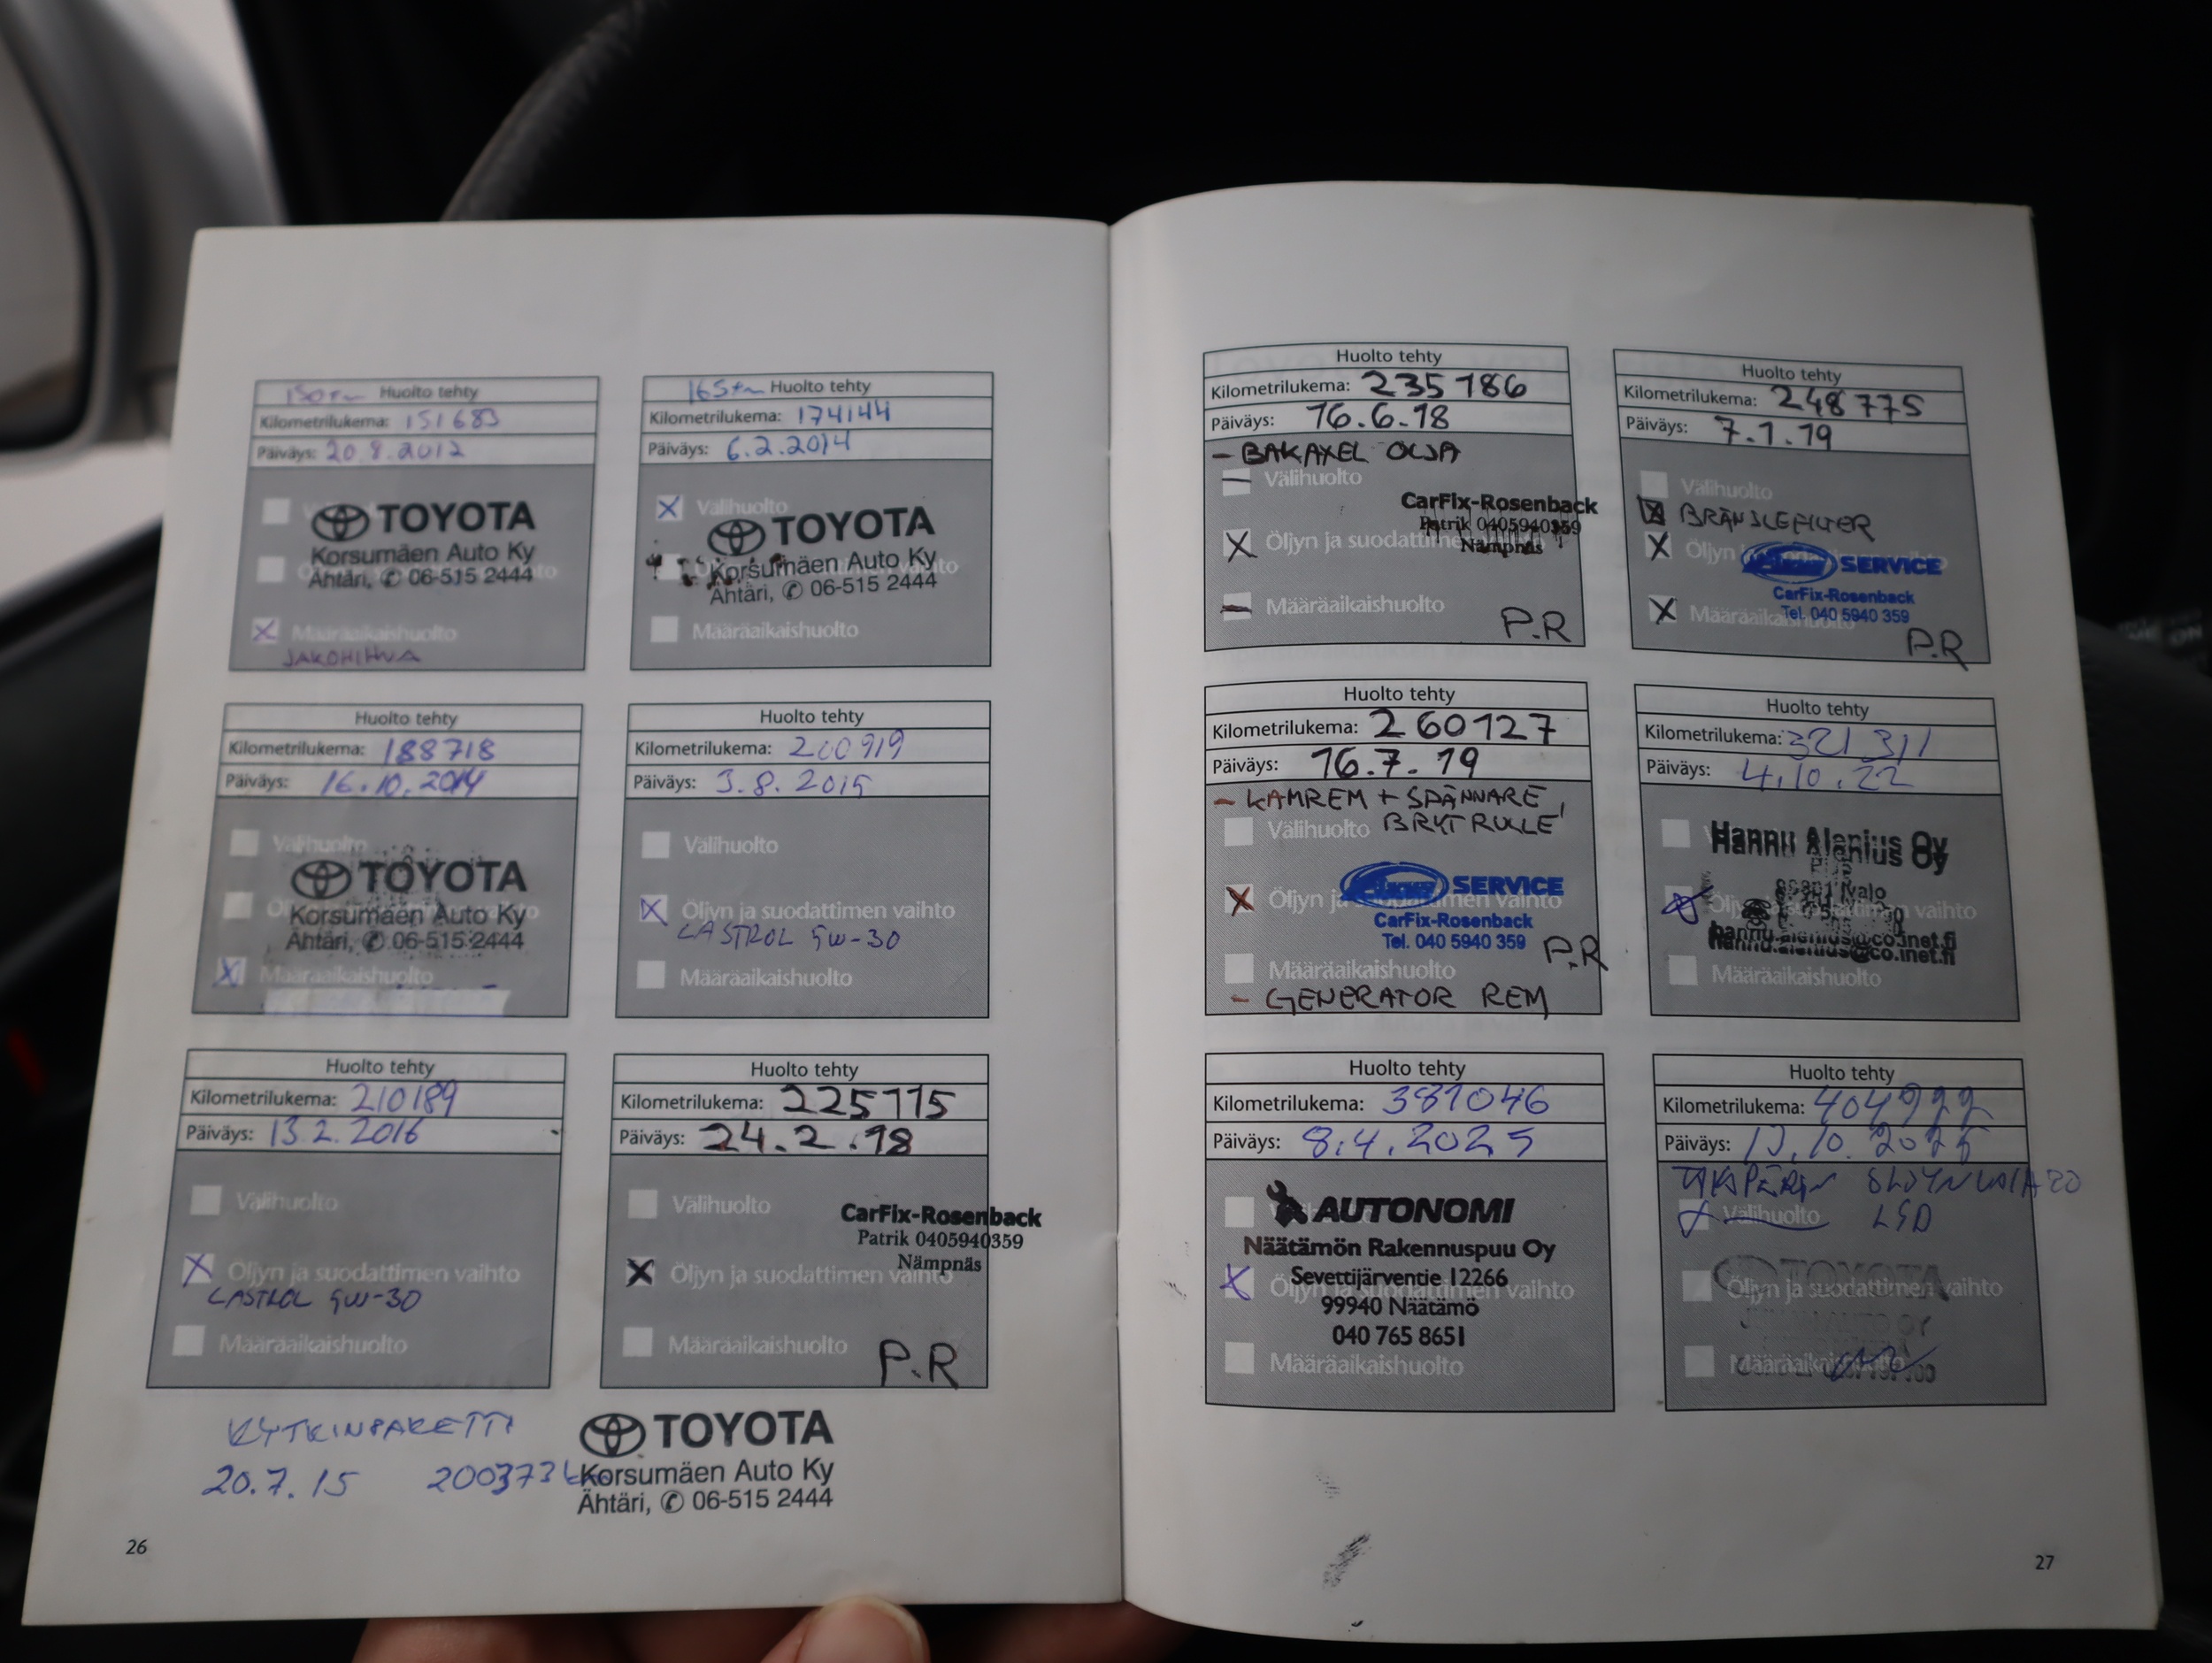 Huolto tehty
Kilometrilukema: 151683
Päiväys: 20.8.2012
TOYOTA
Korsumäen Auto Ky
Ähtäri, ✆ 06-515 2444
Määräaikaishuolto
JAKOHIHNA
165tkm Huolto tehty
Kilometrilukema: 174144
Päiväys: 6.2.2014
Välihuolto
TOYOTA
Korsumäen Auto Ky
Ähtäri, ✆ 06-515 2444
Määräaikaishuolto
Huolto tehty
Kilometrilukema: 188718
Päiväys: 16.10.2014
Välihuolto
TOYOTA
Korsumäen Auto Ky
Ähtäri, ✆ 06-515 2444
Määräaikaishuolto
Huolto tehty
Kilometrilukema: 200919
Päiväys: 3.8.2015
Välihuolto
Öljyn ja suodattimen vaihto
CASTROL 5W-30
Määräaikaishuolto
Huolto tehty
Kilometrilukema: 210189
Päiväys: 13.2.2016
Välihuolto
Öljyn ja suodattimen vaihto
CASTROL 5W-30
Määräaikaishuolto
Huolto tehty
Kilometrilukema: 225115
Päiväys: 24.2.18
Välihuolto
CarFix-Rosenback
Patrik 0405940359
Nämpnäs
Öljyn ja suodattimen vaihto
Määräaikaishuolto
P.R
KYTKINPAKETTI
20.7.15 200373 km
TOYOTA
Korsumäen Auto Ky
Ähtäri, ✆ 06-515 2444
26
Huolto tehty
Kilometrilukema: 235786
Päiväys: 16.6.18
- BAKAXEL OLJA
Välihuolto
CarFix-Rosenback
Patrik 0405940359
Nämpnäs
Öljyn ja suodattimen
Määräaikaishuolto
P.R
Huolto tehty
Kilometrilukema: 248775
Päiväys: 7.1.19
Välihuolto
BRÄNSLEFILTER
Öljyn ja suodattimen vaihto
SERVICE
CarFix-Rosenback
Tel. 040 5940 359
Määräaikaishuolto
P.R
Huolto tehty
Kilometrilukema: 260127
Päiväys: 16.7.19
- KAMREM + SPÄNNARE,
Välihuolto BRYTRULLE
SERVICE
Öljyn ja suodattimen vaihto
CarFix-Rosenback
Tel. 040 5940 359
P.R
Määräaikaishuolto
- GENERATOR REM
Huolto tehty
Kilometrilukema: 321311
Päiväys: 4.10.22
Hannu Alenius Oy
Ivalo
Öljyn ja suodattimen vaihto
hannu.alenius@co.inet.fi
Määräaikaishuolto
Huolto tehty
Kilometrilukema: 381046
Päiväys: 8.4.2025
AUTONOMI
Näätämön Rakennuspuu Oy
Sevettijärventie 12266
Öljyn ja suodattimen vaihto
99940 Näätämö
040 765 8651
Määräaikaishuolto
Huolto tehty
Kilometrilukema:
Päiväys:
TAKAPERÄN ÖLJYNVAIHTO
Välihuolto LSD
TOYOTA
Öljyn ja suodattimen vaihto
Määräaikaishuolto
27